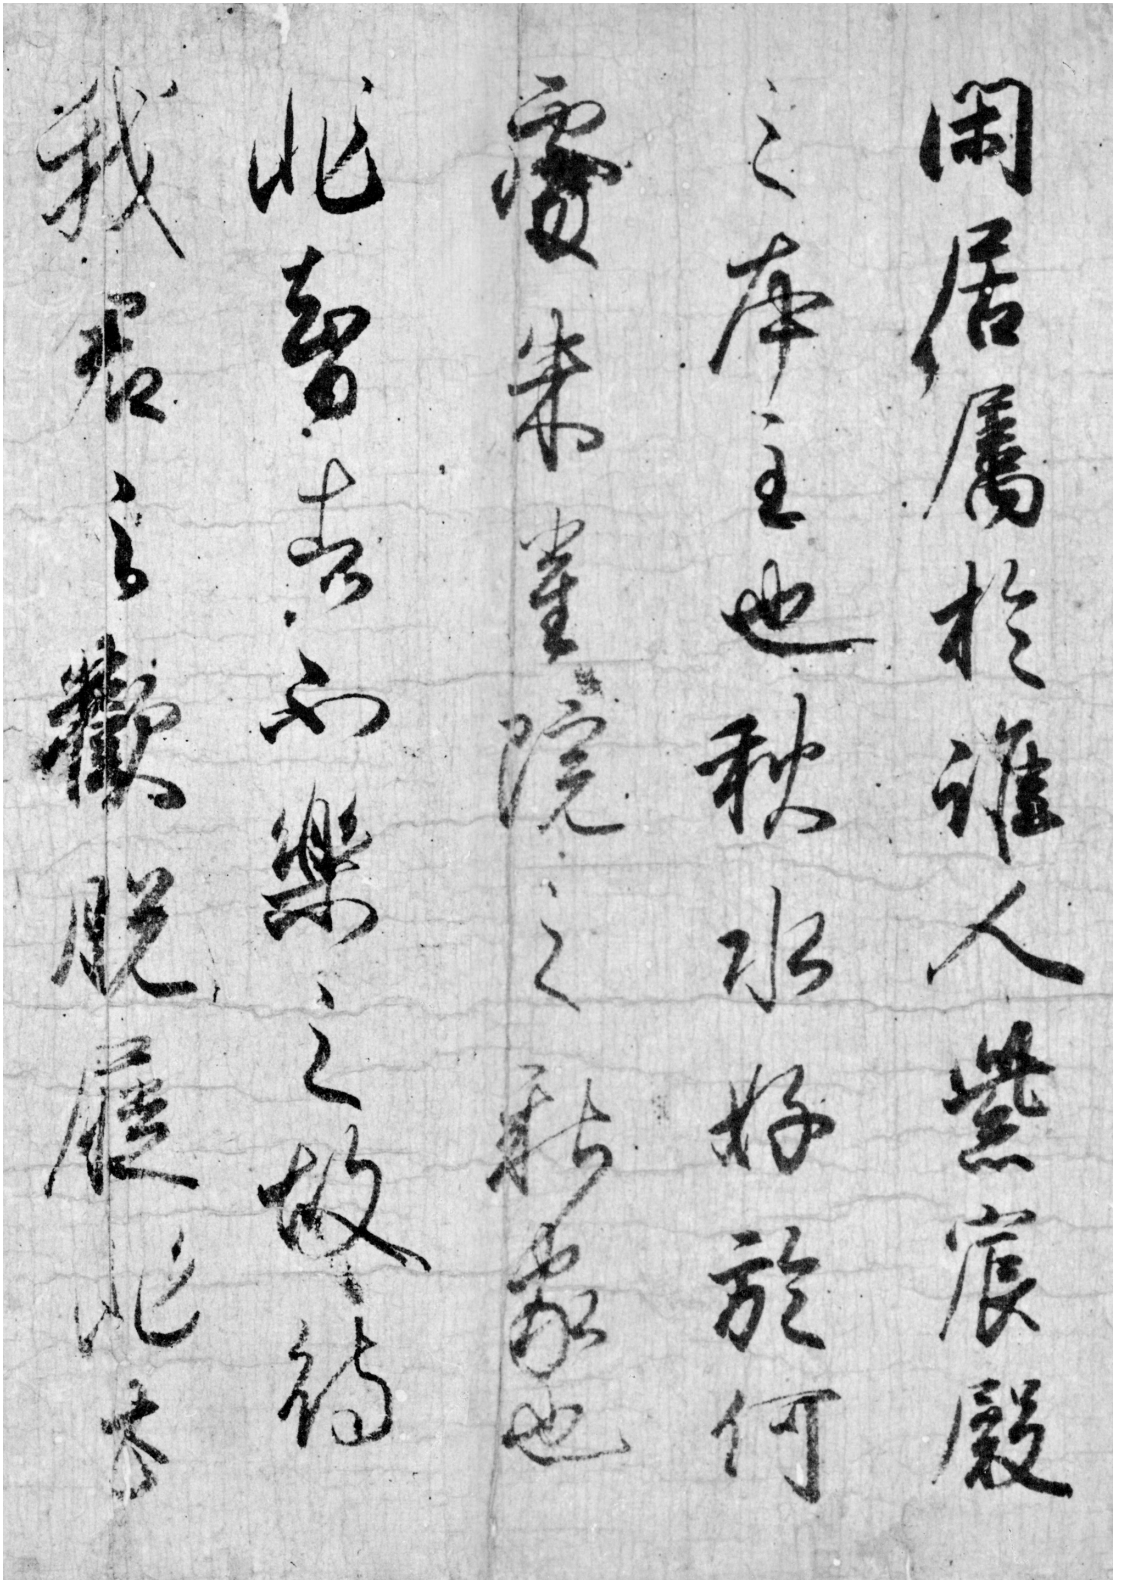 閑居屬於誰人紫宸殿
之本主也秋水好於何
處朱雀院之新家也
非智者不樂之故得
我君之歡脱屣非